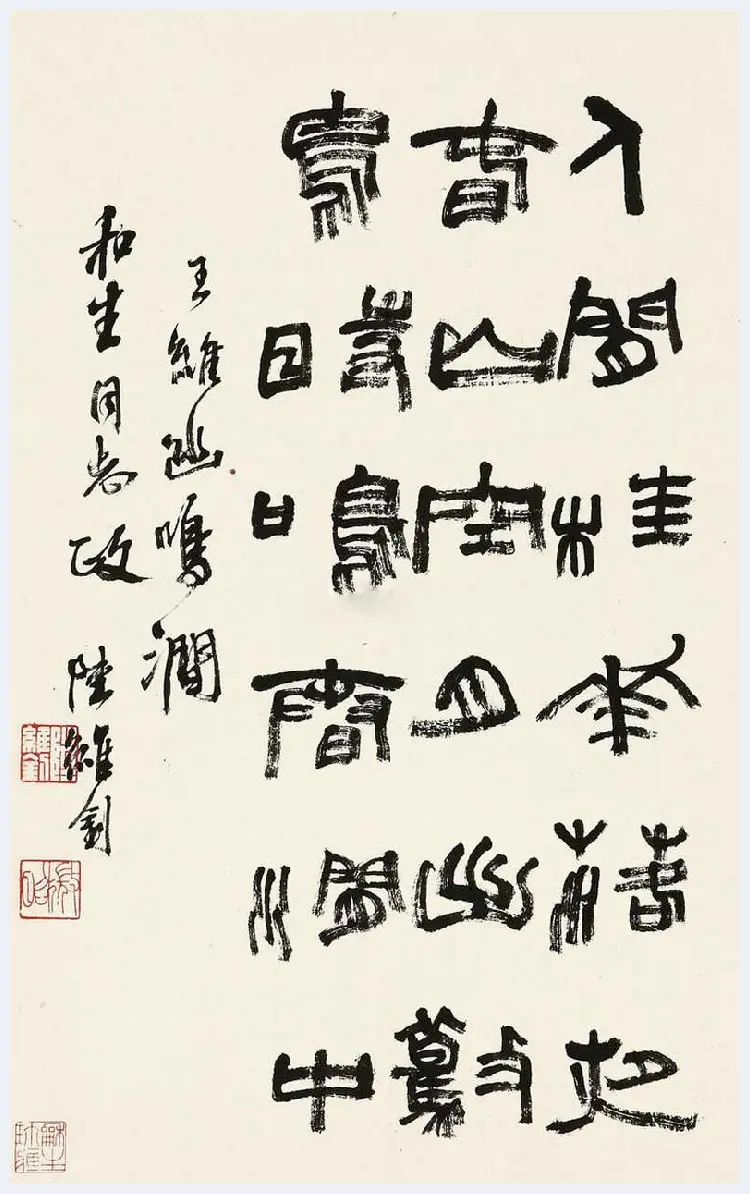 人閒桂華落夜
春山空月出驚
鳥時鳴春澗中
王維鳴澗
和生同志政 陸維釗